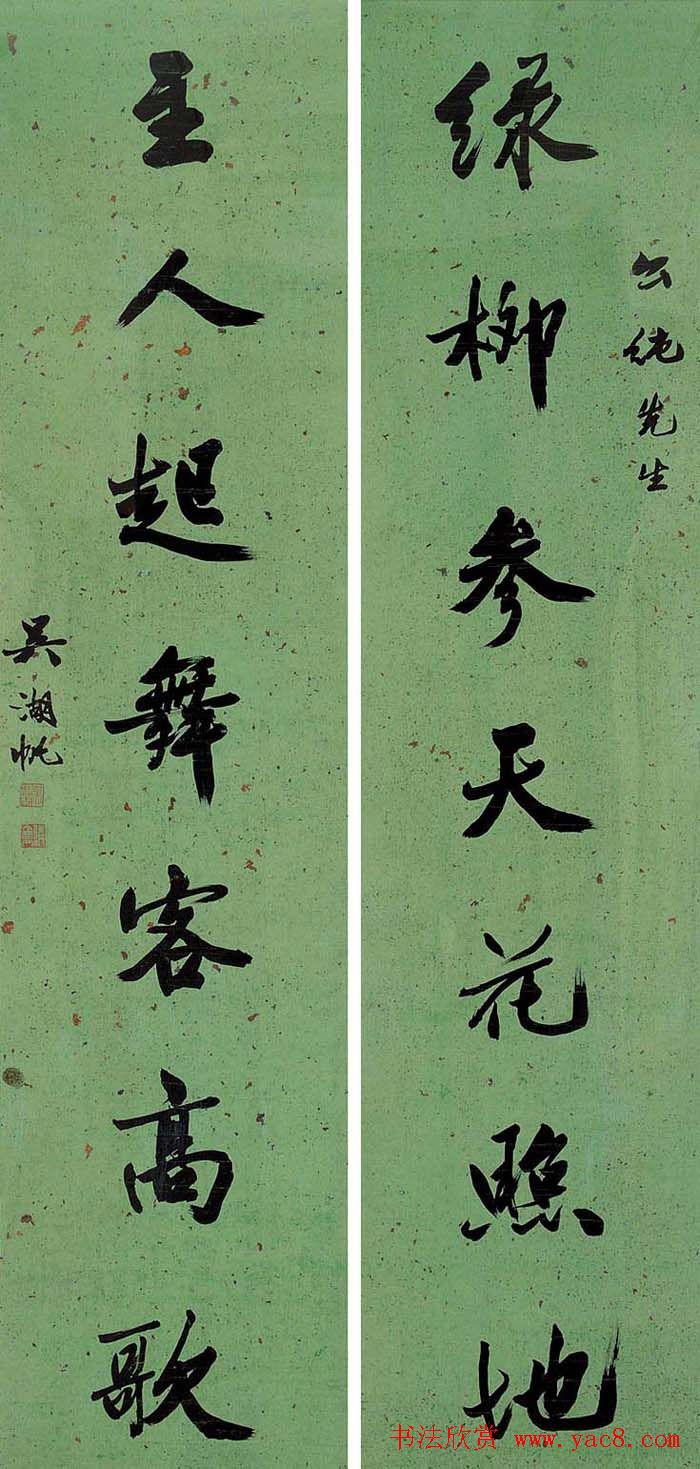 公纯先生
绿柳参天花照地
主人起舞客高歌
吴湖帆
书法欣赏 www.yac8.com